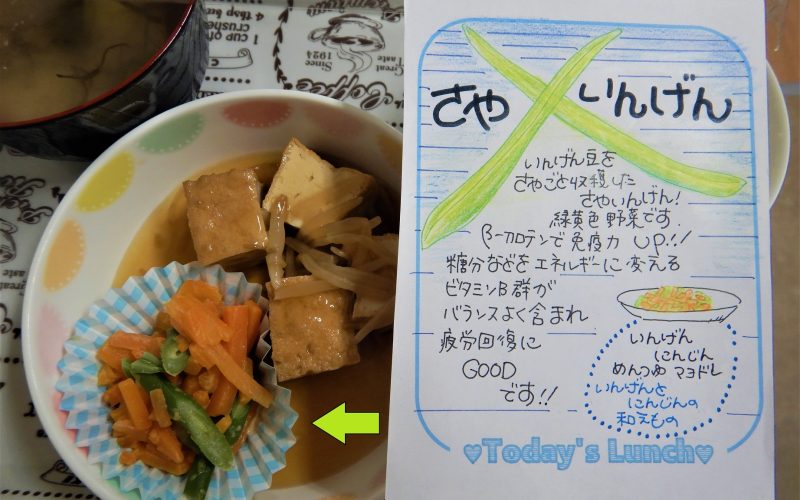 1 CUP of
crushed
Since
1924
Great
Taste
Coffee
さや いんげん
いんげん豆を
さやごと収穫した
さやいんげん!
緑黄色野菜です.
β-カロテンで免疫力 UP!!
糖分などをエネルギーに変える
ビタミンB群が
バランスよく含まれ
疲労回復に
GOOD
です!!
いんげん
にんじん
めんつゆ マヨドレ
いんげんと
にんじんの
和えもの
♥Today's Lunch♥